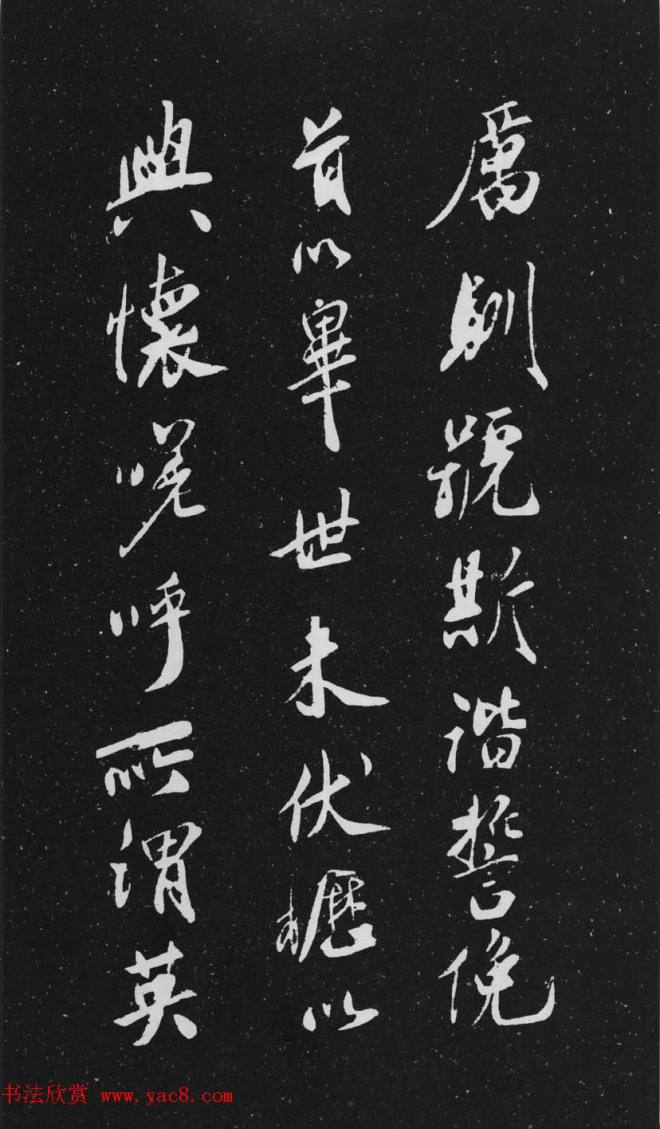 厲馴號斯諧誓俛
首以畢世未伏櫪以
興懷嗟呼所謂英
书法欣赏 www.yac8.com